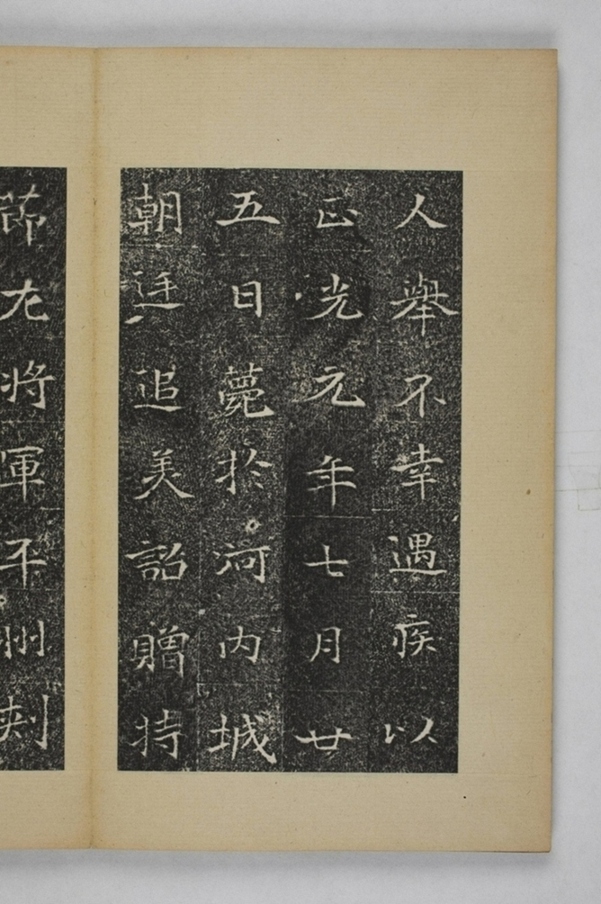 人舉不幸遇疾以
正光元年七月廿
五日薨於河内城
朝廷追美詔贈持
節左將軍平州刺